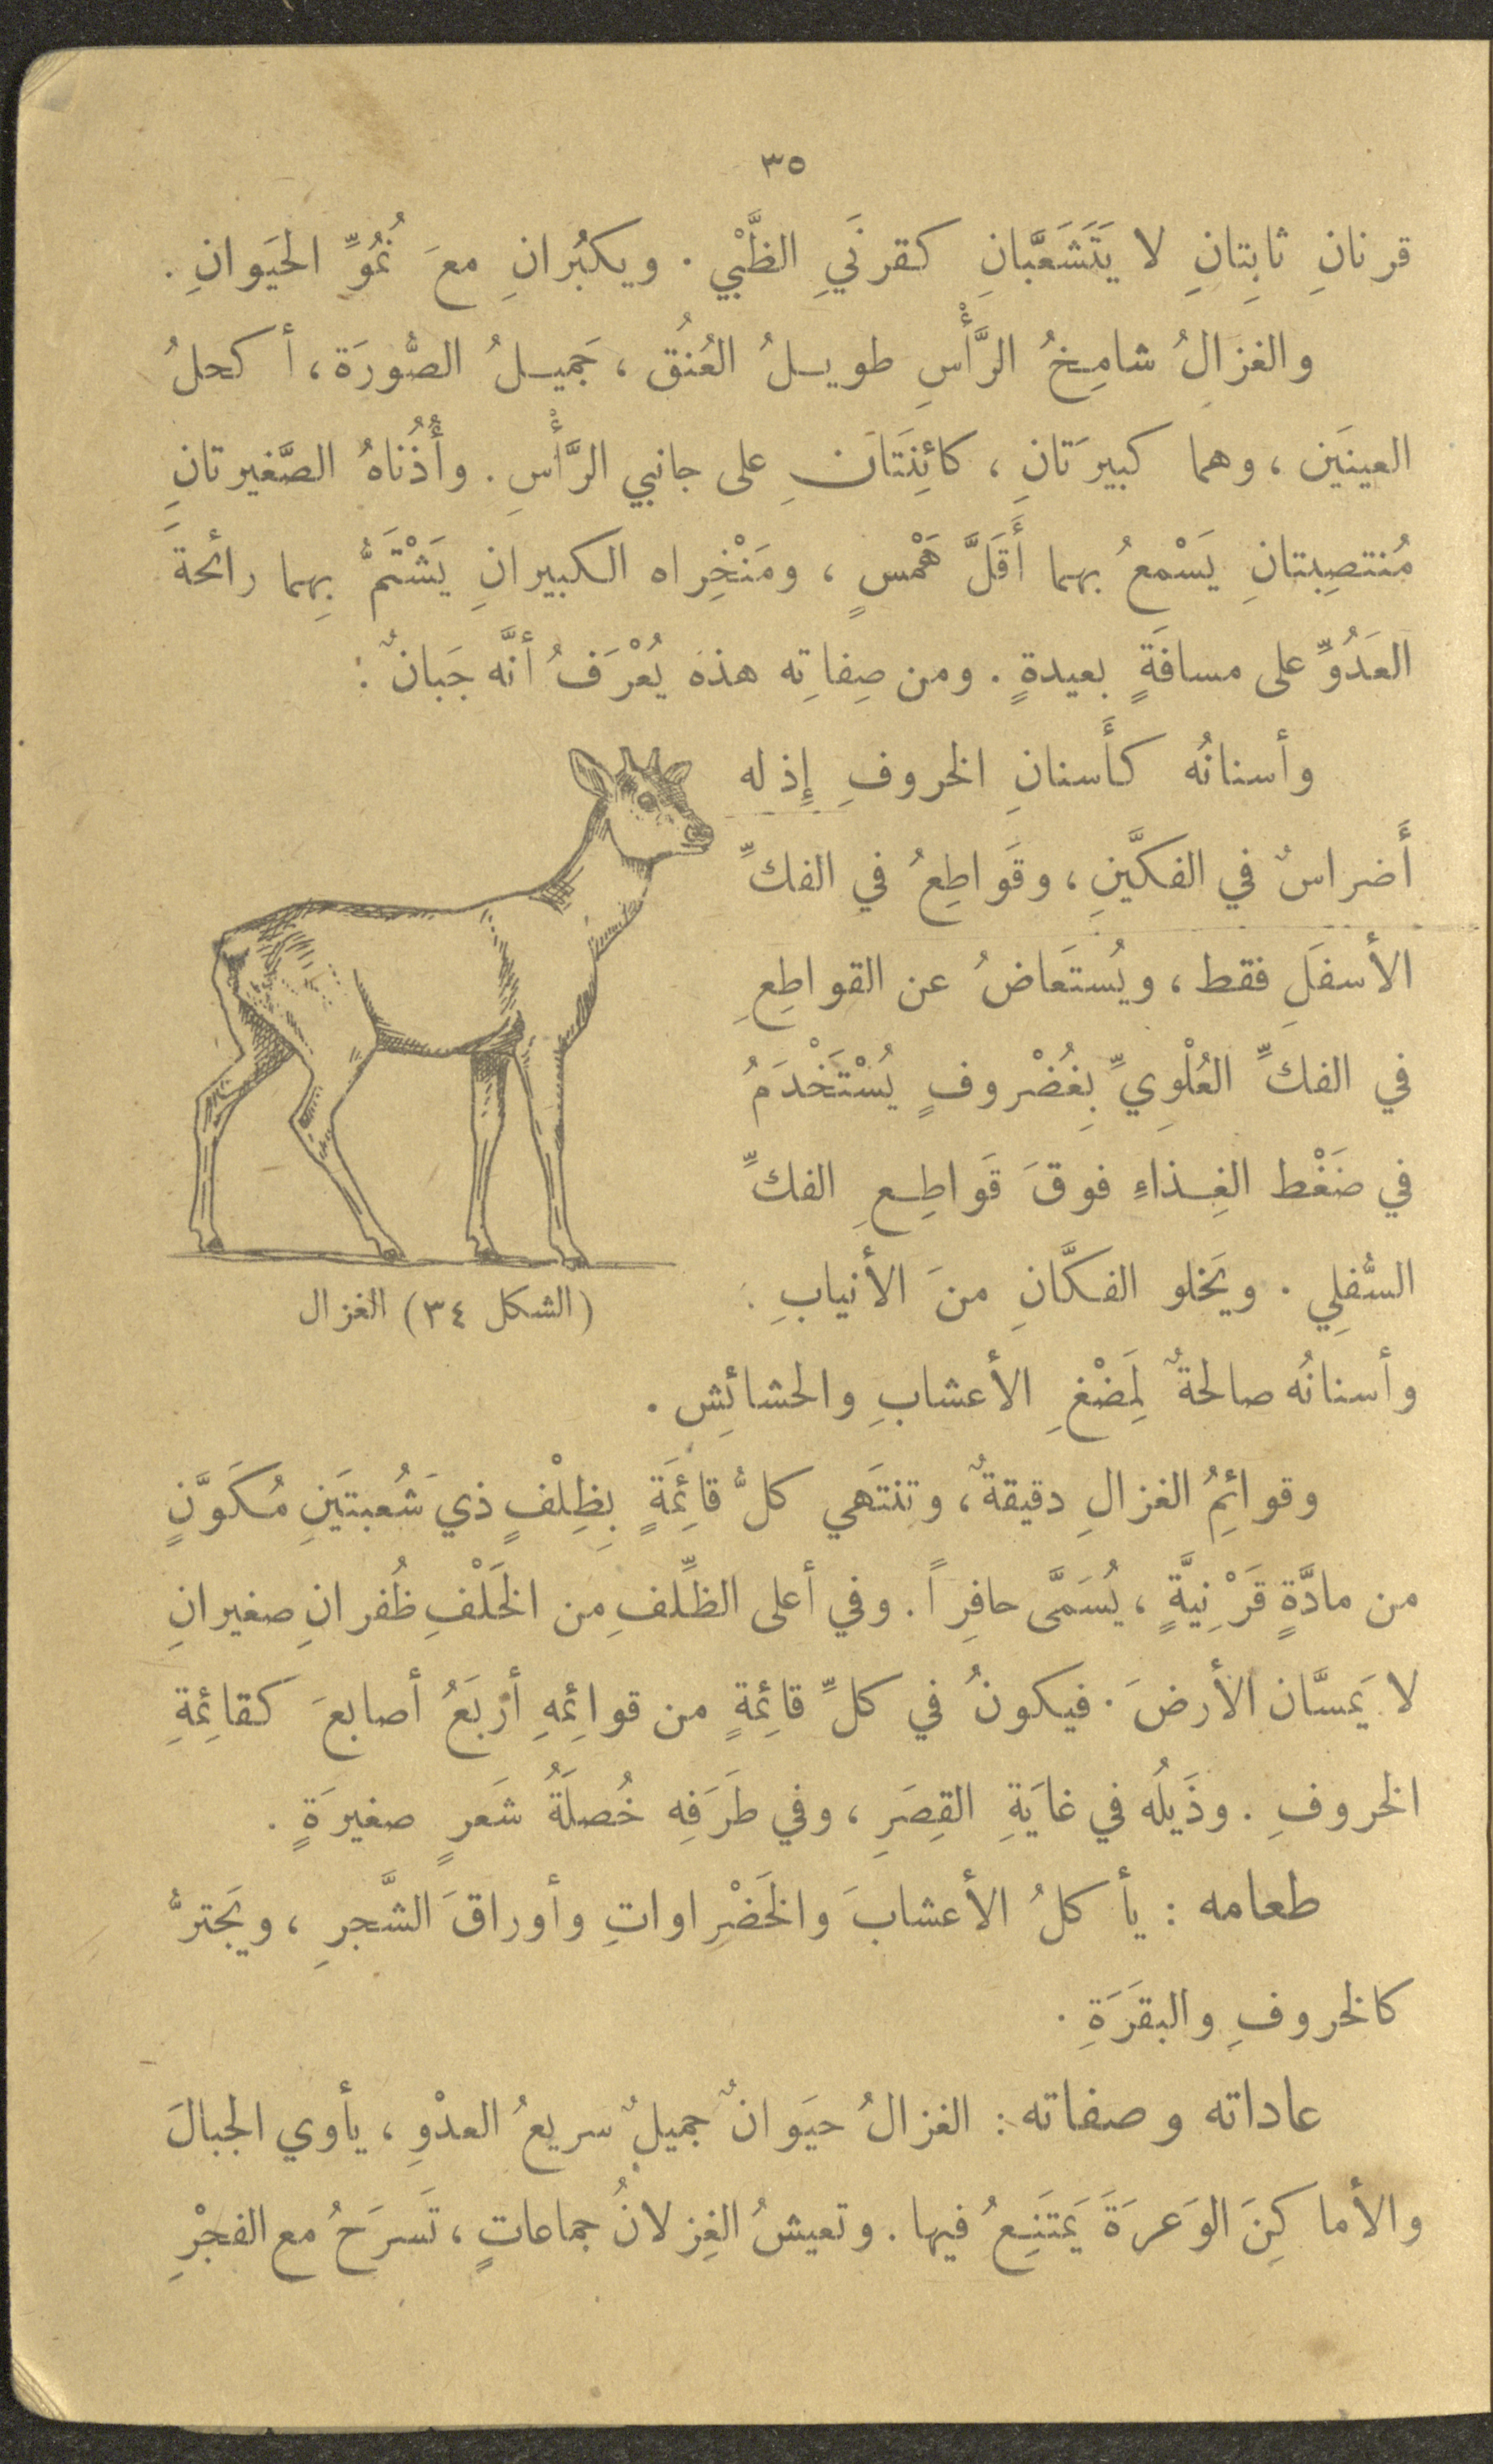 ٣٥
قرنانِ ثابِتانِ لا يَتَشَعَّبَانِ كقرنَيِ الظَّبْيِ . ويكبُرانِ معَ نُمُوِّ الحَيَوانِ .
والغزالُ شامِخُ الرَّأْسِ طويلُ العُنُقِ ، جَميلُ الصُّورَة ، أكحلُ
العينَين ، وهما كبيرَتانِ ، كائِنَتَانِ على جانبي الرَّأْسِ . وأُذُناهُ الصَّغيرتانِ
مُنتصِبتانِ يَسْمعُ بهما أَقَلَّ هَمْسٍ ، ومَنْخِراه الكبيرانِ يَشْتَمُّ بِهما رائحةَ
العَدُوِّ على مسافَةٍ بعيدةٍ . ومن صِفاتِه هذه يُعْرَفُ أنَّه جَبانٌ :
وأسنانُه كأَسنانِ الخروفِ إِذ له
أَضراسٌ في الفكَّينِ ، وقَواطِعُ في الفكِّ
الأسفَلِ فقط ، ويُستَعَاضُ عن القواطِعِ
في الفكِّ العُلْوِيِّ بِغُضْروفٍ يُسْتَخْدَمُ
في ضَغْط الغِذاءِ فوقَ قَواطِعِ الفكِّ
السُّفلِي . ويَخلو الفكَّانِ منَ الأنيابِ .
(الشكل ٣٤) الغزال
وأسنانُه صالحةٌ لِمَضْغِ الأعشابِ والحشائِشِ .
وقوائِمُ الغزالِ دقيقةٌ ، وتنتَهي كلُّ قائِمَةٍ بِظِلْفٍ ذي شُعبتَينِ مُكَوَّنٍ
من مادَّةٍ قَرْنِيَّةٍ ، يُسَمَّى حافِراً . وفي أعلى الظِّلفِ مِن الخَلْفِ ظُفرانِ صغيرانِ
لا يَمسَّان الأرضَ . فيكونُ في كلِّ قائِمةٍ من قوائِمِهِ أربَعُ أصابعَ كقائِمَةِ
الخروفِ . وذَيلُه في غايَةِ القِصَرِ ، وفي طَرَفِه خُصلَةُ شَعَرٍ صغيرَةٍ .
طعامه : يأكلُ الأعشابَ والخَضْراواتِ وأوراقَ الشَّجرِ ، ويَجترُّ
كالخروفِ والبقَرَةِ .
عاداته وصفاته : الغزالُ حيَوانٌ جميلٌ سريعُ العدْوِ ، يأوي الجبالَ
والأماكِنَ الوَعرَةَ يَمتَنِعُ فيها . وتعيشُ الغِزلانُ جماعاتٍ ، تَسرَحُ مع الفجْرِ